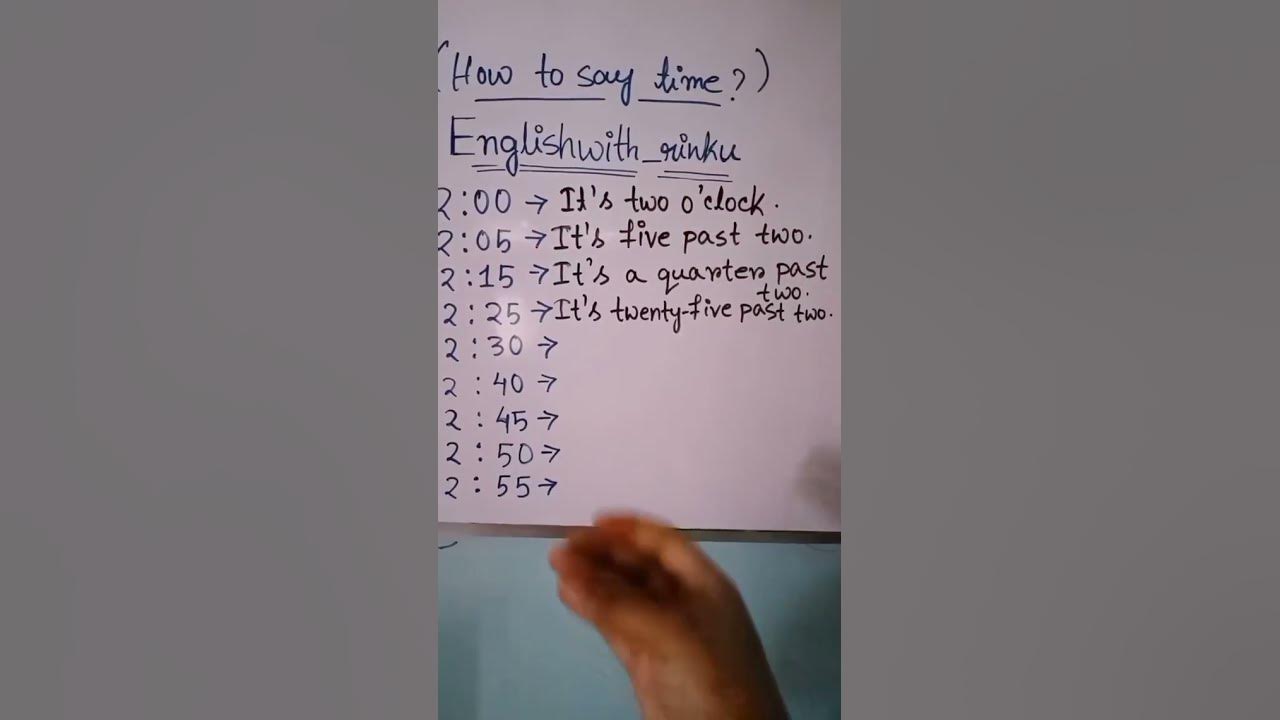 (How to say time?)
Englishwith_rinku
2:00 → It's two o'clock.
2:05 → It's five past two.
2:15 → It's a quarter past
two.
2:25 → It's twenty-five past two.
2:30 →
2:40 →
2:45 →
2:50 →
2:55 →